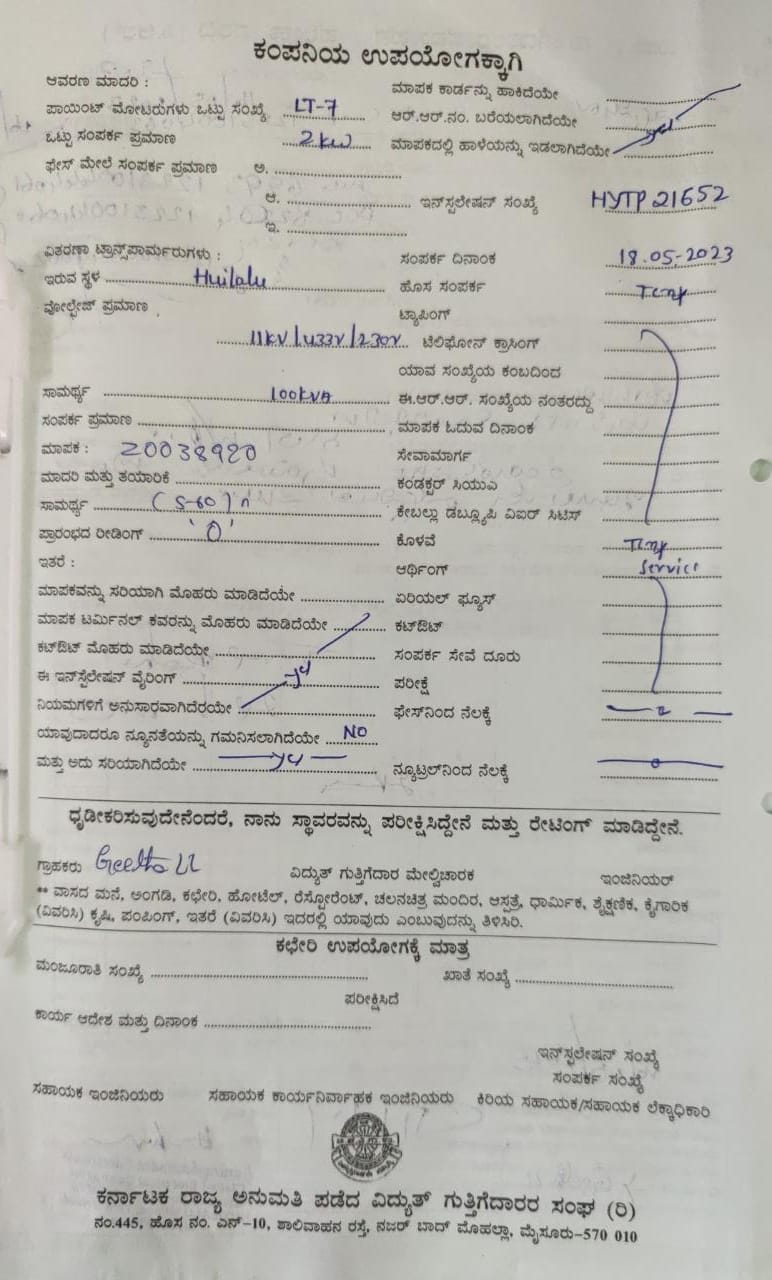 ಕಂಪನಿಯ ಉಪಯೋಗಕ್ಕಾಗಿ
ಆವರಣ ಮಾದರಿ :
ಮಾಪಕ ಕಾರ್ಡನ್ನು ಹಾಕಿದೆಯೇ
ಪಾಯಿಂಟ್ ಮೋಟರುಗಳು ಒಟ್ಟು ಸಂಖ್ಯೆ LT-7
ಆರ್.ಆರ್.ನಂ. ಬರೆಯಲಾಗಿದೆಯೇ
ಒಟ್ಟು ಸಂಪರ್ಕ ಪ್ರಮಾಣ 2kw
ಮಾಪಕದಲ್ಲಿ ಹಾಳೆಯನ್ನು ಇಡಲಾಗಿದೆಯೇ
ಫೇಸ್ ಮೇಲೆ ಸಂಪರ್ಕ ಪ್ರಮಾಣ ಅ.
ಆ. ಇನ್‌ಸ್ಟಲೇಷನ್ ಸಂಖ್ಯೆ HYTP 21652
ಇ.
ವಿತರಣಾ ಟ್ರಾನ್ಸ್‌ಪಾರ್ಮರುಗಳು :
ಸಂಪರ್ಕ ದಿನಾಂಕ 18.05.2023
ಇರುವ ಸ್ಥಳ Huilalu
ಹೊಸ ಸಂಪರ್ಕ Temp
ವೋಲ್ಟೇಜ್ ಪ್ರಮಾಣ
ಟ್ಯಾಪಿಂಗ್
11kV/433V/230V ಟೆಲಿಫೋನ್ ಕ್ರಾಸಿಂಗ್
ಯಾವ ಸಂಖ್ಯೆಯ ಕಂಬದಿಂದ
ಸಾಮರ್ಥ್ಯ 100kVA
ಈ.ಆರ್.ಆರ್. ಸಂಖ್ಯೆಯ ನಂತರದ್ದು
ಸಂಪರ್ಕ ಪ್ರಮಾಣ
ಮಾಪಕ ಓದುವ ದಿನಾಂಕ
ಮಾಪಕ : 20038920
ಸೇವಾಮಾರ್ಗ
ಮಾದರಿ ಮತ್ತು ತಯಾರಿಕೆ
ಕಂಡಕ್ಟರ್ ಸಿಯುಎ
ಸಾಮರ್ಥ್ಯ (5-60)
ಕೇಬಲ್ಲು ಡಬ್ಲ್ಯೂಪಿ ವಿಐರ್ ಸಿಟಿಸ್
ಪ್ರಾರಂಭದ ರೀಡಿಂಗ್ 'O'
ಕೊಳವೆ Temp
ಇತರೆ :
ಆರ್ಥಿಂಗ್ Service
ಮಾಪಕವನ್ನು ಸರಿಯಾಗಿ ಮೊಹರು ಮಾಡಿದೆಯೇ
ಏರಿಯಲ್ ಫ್ಯೂಸ್
ಮಾಪಕ ಟರ್ಮಿನಲ್ ಕವರನ್ನು ಮೊಹರು ಮಾಡಿದೆಯೇ
ಕಟ್‌ಔಟ್
ಕಟ್‌ಔಟ್ ಮೊಹರು ಮಾಡಿದೆಯೇ
ಸಂಪರ್ಕ ಸೇವೆ ದೂರು
ಈ ಇನ್‌ಸ್ಟೆಲೇಷನ್ ವೈರಿಂಗ್
ಪರೀಕ್ಷೆ
ನಿಯಮಗಳಿಗೆ ಅನುಸಾರವಾಗಿದೆರಯೇ
ಫೇಸ್‌ನಿಂದ ನೆಲಕ್ಕೆ
ಯಾವುದಾದರೂ ನ್ಯೂನತೆಯನ್ನು ಗಮನಿಸಲಾಗಿದೆಯೇ NO
ಮತ್ತು ಅದು ಸರಿಯಾಗಿದೆಯೇ
ನ್ಯೂಟ್ರಲ್‌ನಿಂದ ನೆಲಕ್ಕೆ
ಧೃಡೀಕರಿಸುವುದೇನೆಂದರೆ, ನಾನು ಸ್ಥಾವರವನ್ನು ಪರೀಕ್ಷಿಸಿದ್ದೇನೆ ಮತ್ತು ರೇಟಿಂಗ್ ಮಾಡಿದ್ದೇನೆ.
ಗ್ರಾಹಕರು ವಿದ್ಯುತ್ ಗುತ್ತಿಗೆದಾರ ಮೇಲ್ವಿಚಾರಕ ಇಂಜಿನಿಯರ್
** ವಾಸದ ಮನೆ, ಅಂಗಡಿ, ಕಛೇರಿ, ಹೋಟೆಲ್, ರೆಸ್ಟೋರೆಂಟ್, ಚಲನಚಿತ್ರ ಮಂದಿರ, ಆಸ್ಪತ್ರೆ, ಧಾರ್ಮಿಕ, ಶೈಕ್ಷಣಿಕ, ಕೈಗಾರಿಕ
(ವಿವರಿಸಿ) ಕೃಷಿ, ಪಂಪಿಂಗ್, ಇತರೆ (ವಿವರಿಸಿ) ಇದರಲ್ಲಿ ಯಾವುದು ಎಂಬುವುದನ್ನು ತಿಳಿಸಿರಿ.
ಕಛೇರಿ ಉಪಯೋಗಕ್ಕೆ ಮಾತ್ರ
ಮಂಜೂರಾತಿ ಸಂಖ್ಯೆ ಖಾತೆ ಸಂಖ್ಯೆ
ಪರೀಕ್ಷಿಸಿದೆ
ಕಾರ್ಯ ಆದೇಶ ಮತ್ತು ದಿನಾಂಕ
ಇನ್‌ಸ್ಟಲೇಷನ್ ಸಂಖ್ಯೆ
ಸಂಪರ್ಕ ಸಂಖ್ಯೆ
ಸಹಾಯಕ ಇಂಜಿನಿಯರು ಸಹಾಯಕ ಕಾರ್ಯನಿರ್ವಾಹಕ ಇಂಜಿನಿಯರು ಕಿರಿಯ ಸಹಾಯಕ/ಸಹಾಯಕ ಲೆಕ್ಕಾಧಿಕಾರಿ
ಕರ್ನಾಟಕ ರಾಜ್ಯ ಅನುಮತಿ ಪಡೆದ ವಿದ್ಯುತ್ ಗುತ್ತಿಗೆದಾರರ ಸಂಘ (ರಿ)
ನಂ.445, ಹೊಸ ನಂ. ಎನ್-10, ಶಾಲಿವಾಹನ ರಸ್ತೆ, ನಜರ್ ಬಾದ್ ಮೊಹಲ್ಲಾ, ಮೈಸೂರು-570 010